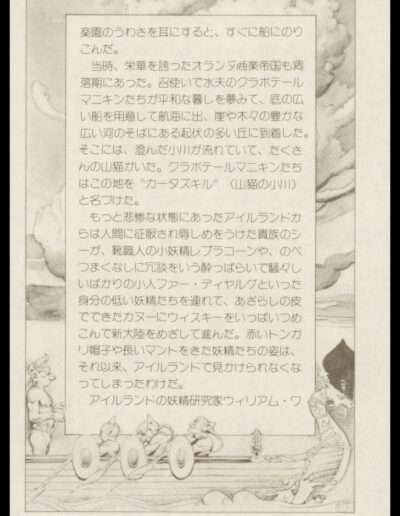 楽園のうわさを耳にすると、すぐに船にのり
こんだ。
当時、栄華を誇ったオランダ商業帝国も凋
落期にあった。召使いで水夫のクラボテール
マニキンたちが平和な暮しを夢みて、底の広
い船を用意して航海に出、崖や木々の豊かな
広い河のそばにある起伏の多い丘に到着した。
そこには、澄んだ小川が流れていて、たくさ
んの山猫がいた。クラボテールマニキンたち
はこの地を〝カータズキル〟（山猫の小川）
と名づけた。
もっと悲惨な状態にあったアイルランドか
らは人間に征服され辱しめをうけた貴族のシ
ーが、靴職人の小妖精レプラコーンや、のべ
つまくなしに冗談をいう酔っぱらいで騒々し
いばかりの小人ファー・ディヤルグといった
身分の低い妖精たちを連れて、あざらしの皮
でできたカヌーにウィスキーをいっぱいつめ
こんで新大陸をめざして進んだ。赤いトンガ
リ帽子や長いマントをきた妖精たちの姿は、
それ以来、アイルランドで見かけられなくな
ってしまったわけだ。
アイルランドの妖精研究家ウィリアム・ワ